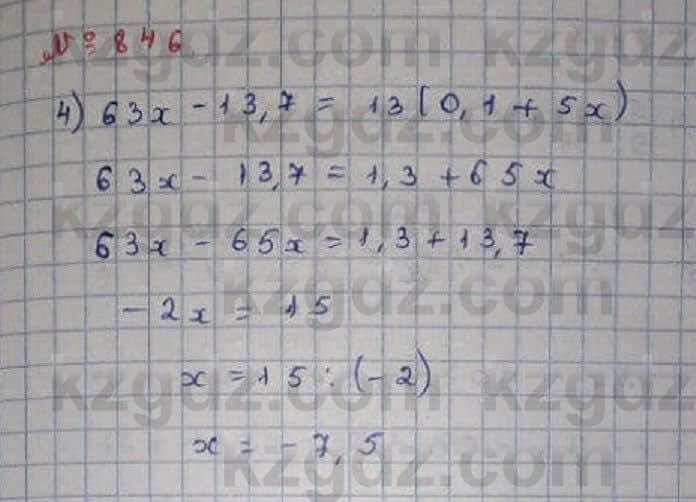 № 846
4) 63x - 13,7 = 13(0,1 + 5x)
63x - 13,7 = 1,3 + 65x
63x - 65x = 1,3 + 13,7
- 2x = 15
x = 15 : (-2)
x = - 7,5
kzgdz.com
kzgdz.com
kzgdz.com
kzgdz.com
kzgdz.com
kzgdz.com